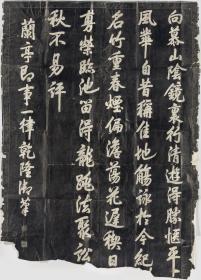 向慕山陰鏡裏行清遊得勝愜平
風華自昔稱佳地觴詠於今紀
名竹重春煙偏澹蕩花遲禊日
敷榮臨池留得龍跳法聚訟
秋不易評
蘭亭即事一律乾隆御筆